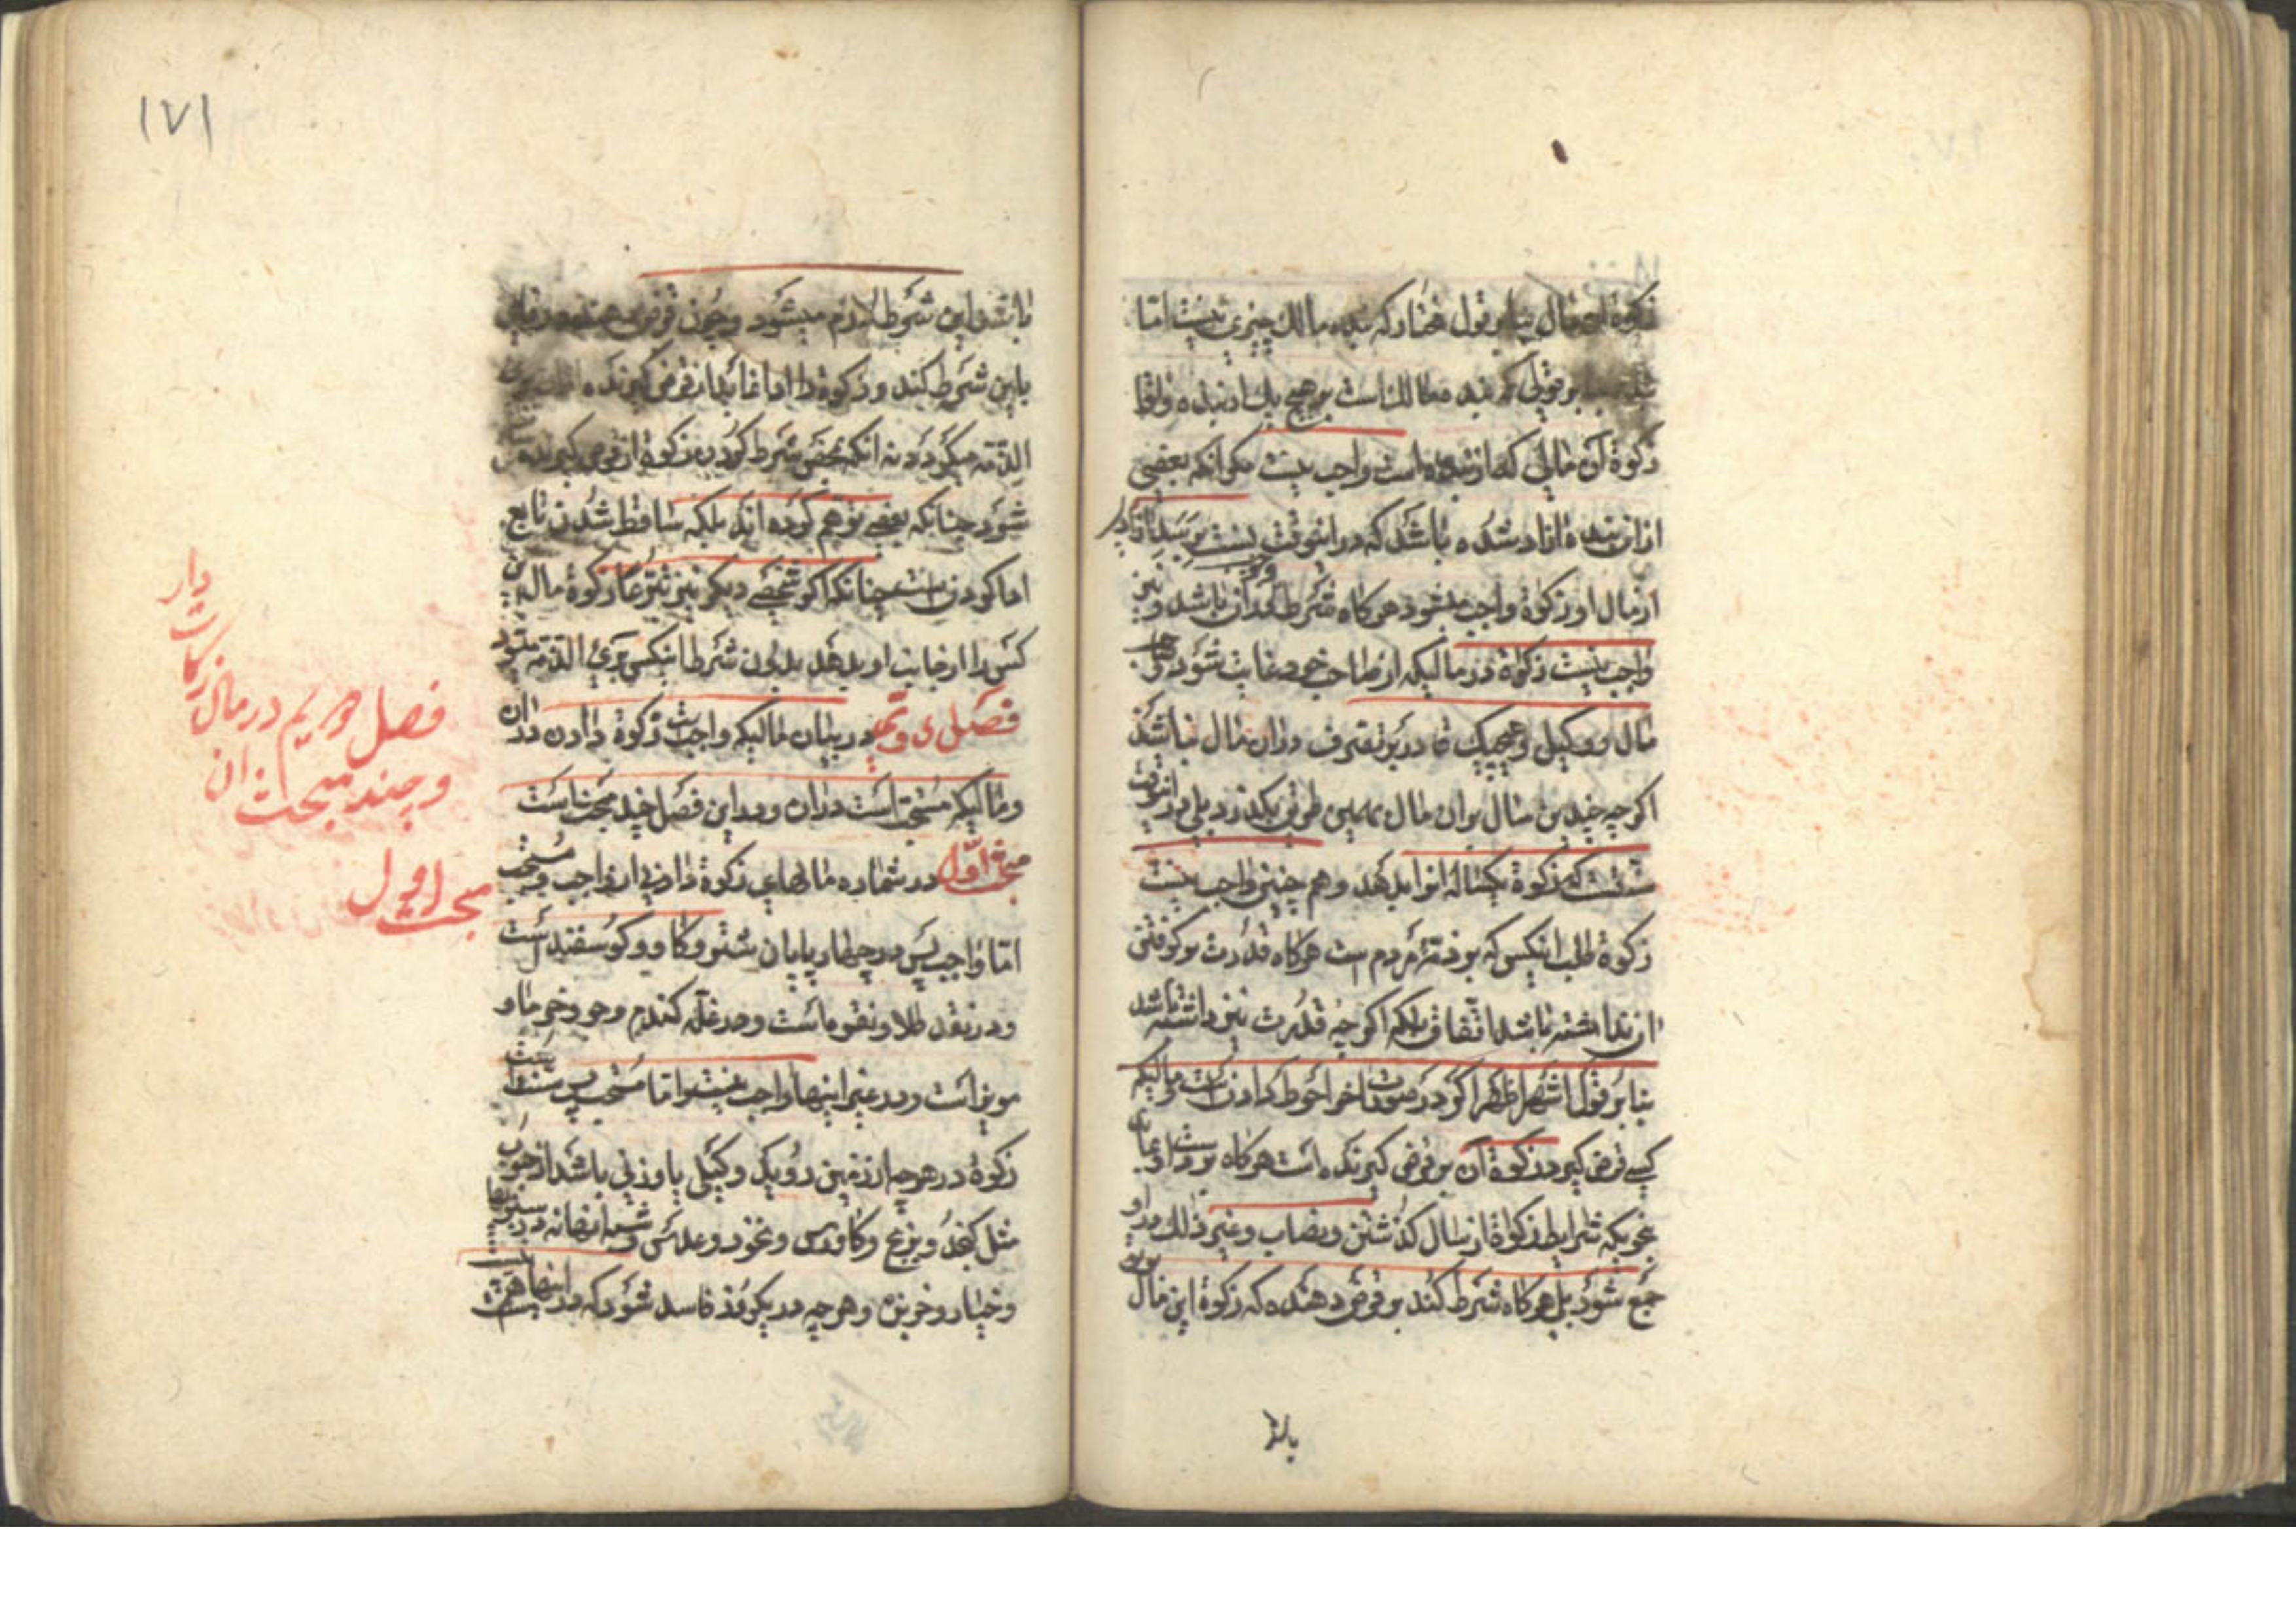 زکوة آن مال بنا بر قول مختار که بنده مالک چیزی نیست اما
بنا بر قولی که بنده مالک است بر هیچ یک از بنده و اقا
زکوة آن مالی که از بنده است واجب نیست مکر آنکه بعضی
از این بنده ازاد شده باشد که در اینوقت
از مال او زکوة واجب میشود هرکاه شرط باشد و نیز
واجب نیست زکوة در مالیکه از صاحب خود غایب شود و
مال و وکیل او هیچیک قادر بر تصرف در ان مال نباشند
اکرچه چندین سال بر ان مال بهمین طریق بکذرد بلی در اینوقت
سنت است که زکوة یکساله انرا بدهد و هم چنین واجب نیست
زکوة طلب انکس که بر ذمّه مردم است هرکاه قدرت بر کرفتن
ان نداشته باشد اتفاقا بلکه اکرچه قدرت نیز داشته باشد
بنا بر قول اشهر اظهر اکرچه در صورت اخر احوط دادن است و مالیکه
کسی قرض کیرد زکوة آن بر قرض کیرنده است هرکاه نزد او بماند
بنحویکه شرایط زکوة از سال کذشتن و نصاب و غیر ذلک در او
جمع شود بلی هرکاه شرط کند بر قرض دهنده که زکوة این مال
با او
۱۷۱
باشد این شرط لازم میشود و چون قرض دهنده
باین شرط کند و زکوة را ادا نماید از قرض کیرنده
الذّمه میکردد نه انکه بمحض شرط کردن زکوة از قرض کیرنده
شود چنانکه بعضی توهم کرده اند بلکه ساقط شدن تابع
ادا کردن است چنانکه اکر شخصی دیکر نیز تبرعا زکوة مال
کسی را از جانب او بدهد بدون شرط اینکس بری الذمه میشود
فصل دویّم در بیان مالیکه واجب است زکوة دادن در ان
و مالیکه مستحب است در ان و در این فصل چند مبحث است
مبحث اوّل در شماره مالهای زکوة دادنی از واجب و مستحب
امّا واجب پس در چهارپایان شتر و کاو و کوسفند است
و در نقد طلا و نقره است و در غلّه کندم و جو و خرما و
مویز است و در غیر اینها واجب نیست و اما مستحب پس سنت است
زکوة در هرچه از زمین روید و کیلی یا وزنی باشد از حبوب
مثل کنجد و برنج و کاورس و نخود و عدس و شبه انها نه در سبزیها
و خیار و خربزه و هرچه در یکروز فاسد شود که در اینها نیست
فصل دویم در مال زکات دار
و چند مبحث ان
مبحث اول